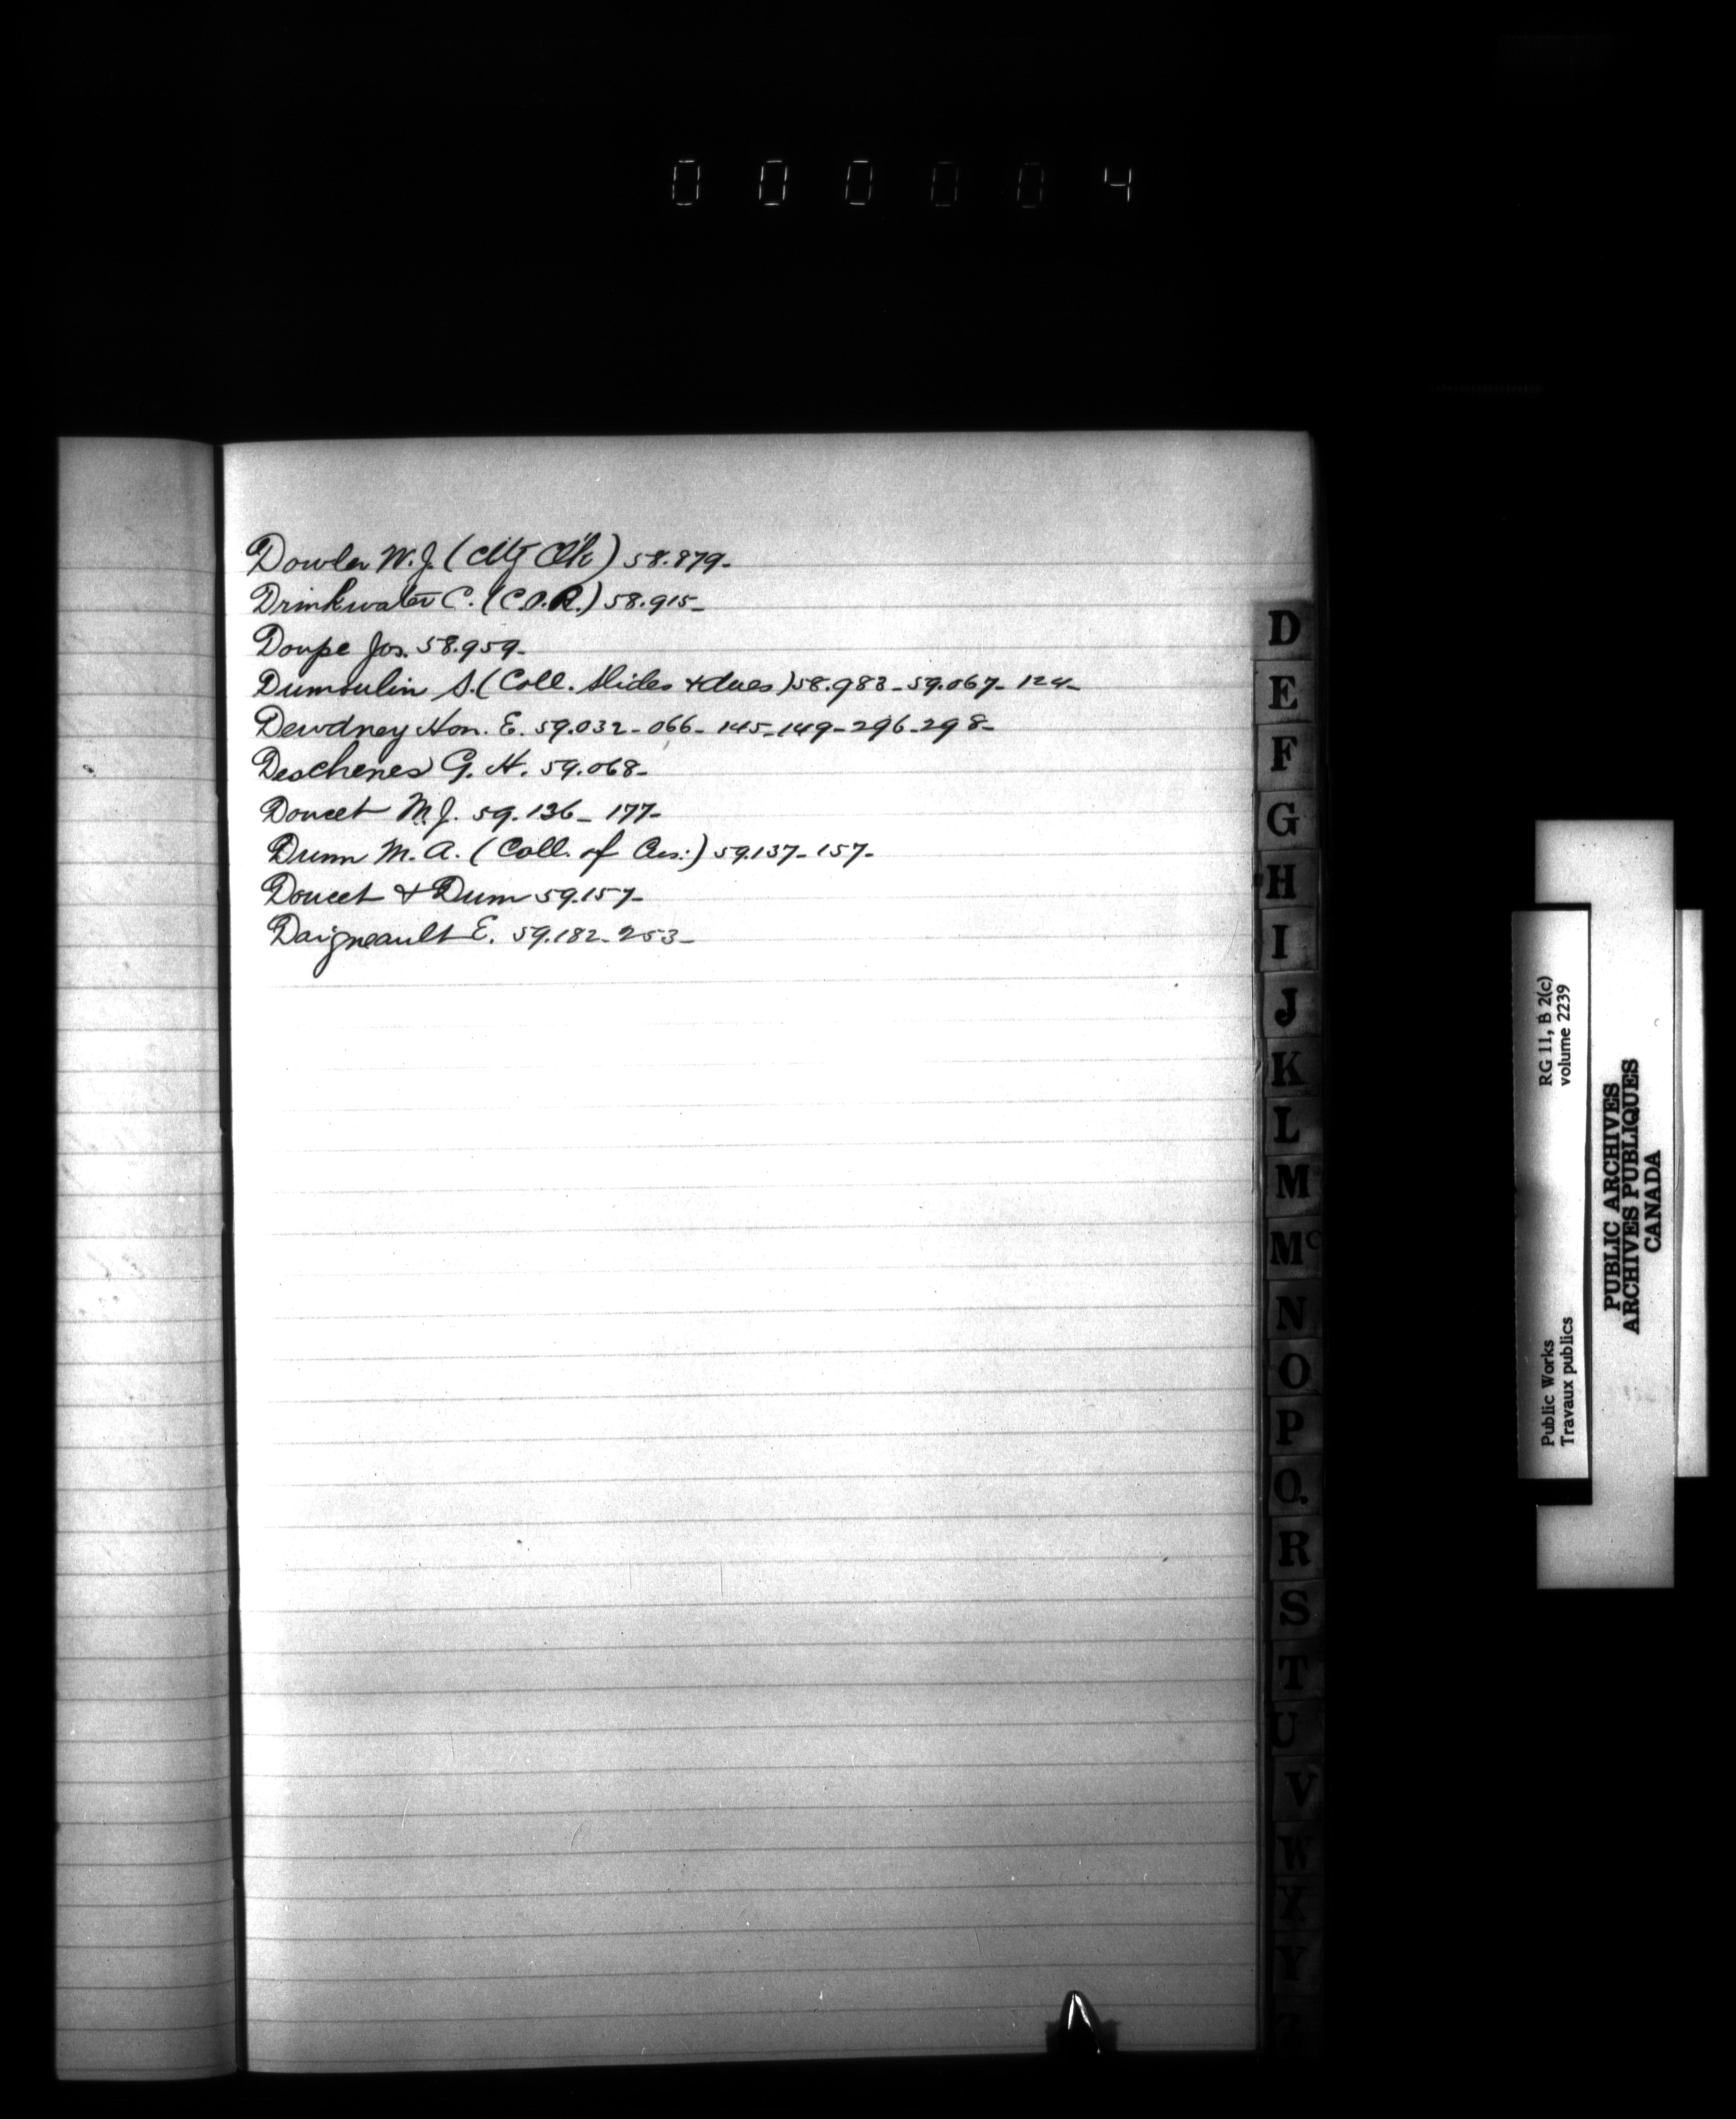 000004
Dowler W.J. (City Clk) 58.879-
Drinkwater C. (C.P.R.) 58.915-
Doupe Jos. 58.959-
Dumoulin S. (Coll. Slides & dues) 58.983-59.067-124-
Dewdney Hon. E. 59.032-066-145-149-296-298-
Deschenes G. H. 59.068-
Doucet M.J. 59.136-177-
Dunn M. A. (Coll. of Cus:) 59.137-157-
Doucet & Dunn 59.157-
Daigneault E. 59.182-253-
D
E
F
G
H
I
J
K
L
M
Mc
N
O
P
Q
R
S
T
U
V
W
X
Y
RG 11, B 2(c)
volume 2239
Public Works
Travaux publics
PUBLIC ARCHIVES
ARCHIVES PUBLIQUES
CANADA